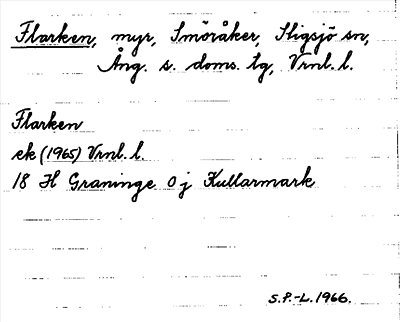 Flarken, myr, Smöråker, Stigsjö sn,
Ång. s. doms. tg, Vrnl. l.
Flarken
ek (1965) Vrnl. l.
18 H Graninge 0 j Kullarmark
S.P.-L. 1966.